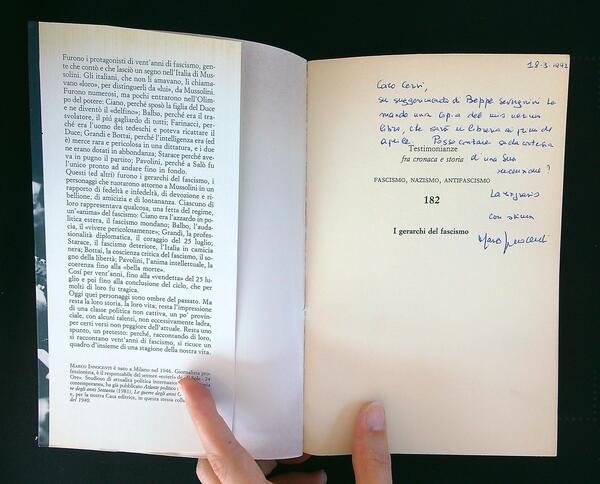 Furono i protagonisti di vent'anni di fascismo, gen-
te che contò e che lasciò un segno nell'Italia di Mus-
solini. Gli italiani, che non li amavano, li chiama-
vano «loro», per distinguerli da «lui», da Mussolini.
Furono numerosi, ma pochi entrarono nell'Olim-
po del potere: Ciano, perché sposò la figlia del Duce
e ne diventò il «delfino»; Balbo, perché era il tra-
svolatore, il più gagliardo di tutti; Farinacci, per-
ché era l'uomo dei tedeschi e poteva ricattare il
Duce; Grandi e Bottai, perché l'intelligenza era (ed
è) merce rara e pericolosa in una dittatura, e i due
ne erano dotati in abbondanza; Starace perché ave-
va in pugno il partito; Pavolini, perché a Salò fu
l'unico pronto ad andare fino in fondo.
Questi (ed altri) furono i gerarchi del fascismo, i
personaggi che ruotarono attorno a Mussolini in un
rapporto di fedeltà e infedeltà, di devozione e ri-
bellione, di amicizia e di lontananza. Ciascuno di
loro rappresentava qualcosa, una fetta del regime,
un'«anima» del fascismo: Ciano era l'azzardo in po-
litica estera, il fascismo mondano; Balbo, l'auda-
cia, il «vivere pericolosamente»; Grandi, la profes-
sionalità diplomatica, il coraggio del 25 luglio;
Starace, il fascismo deteriore, l'Italia in camicia
nera; Bottai, la coscienza critica del fascismo, il so-
gno della libertà; Pavolini, l'anima intellettuale, la
coerenza fino alla «bella morte».
Così per vent'anni, fino alla «vendetta» del 25 lu-
glio e poi fino alla conclusione del ciclo, che per
molti di loro fu tragica.
Oggi quei personaggi sono ombre del passato. Ma
resta la loro storia, la loro vita; resta l'impressione
di una classe politica non cattiva, un po' provin-
ciale, con alcuni talenti, non eccessivamente ladra,
per certi versi non peggiore dell'attuale. Resta uno
spunto, un pretesto: perché, raccontando di loro,
si raccontano vent'anni di fascismo, si ricuce un
quadro d'insieme di una stagione della nostra vita.
MARCO INNOCENTI è nato a Milano nel 1946. Giornalista pro-
fessionista, è il responsabile del settore «esteri» de Il Sole - 24
Ore». Studioso di attualità politica internazio
contemporanea, ha già pubblicato Atlante politico
re degli anni Settanta (1981), Le guerre degli anni
e, per la nostra Casa editrice, in questa stessa colla
del 1940.
18-3-1992
Caro Cervi,
su suggerimento di Beppe Severgnini Le
mando una copia del mio nuovo
libro, che sarà in libreria ai primi di
aprile. Posso contare sulla cortesia
di una Sua
recensione?
La ringrazio
con stima
Marco Innocenti
Testimonianze
fra cronaca e storia
FASCISMO, NAZISMO, ANTIFASCISMO
182
I gerarchi del fascismo